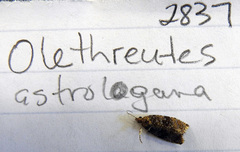 2837
Olethreutes
astrologana